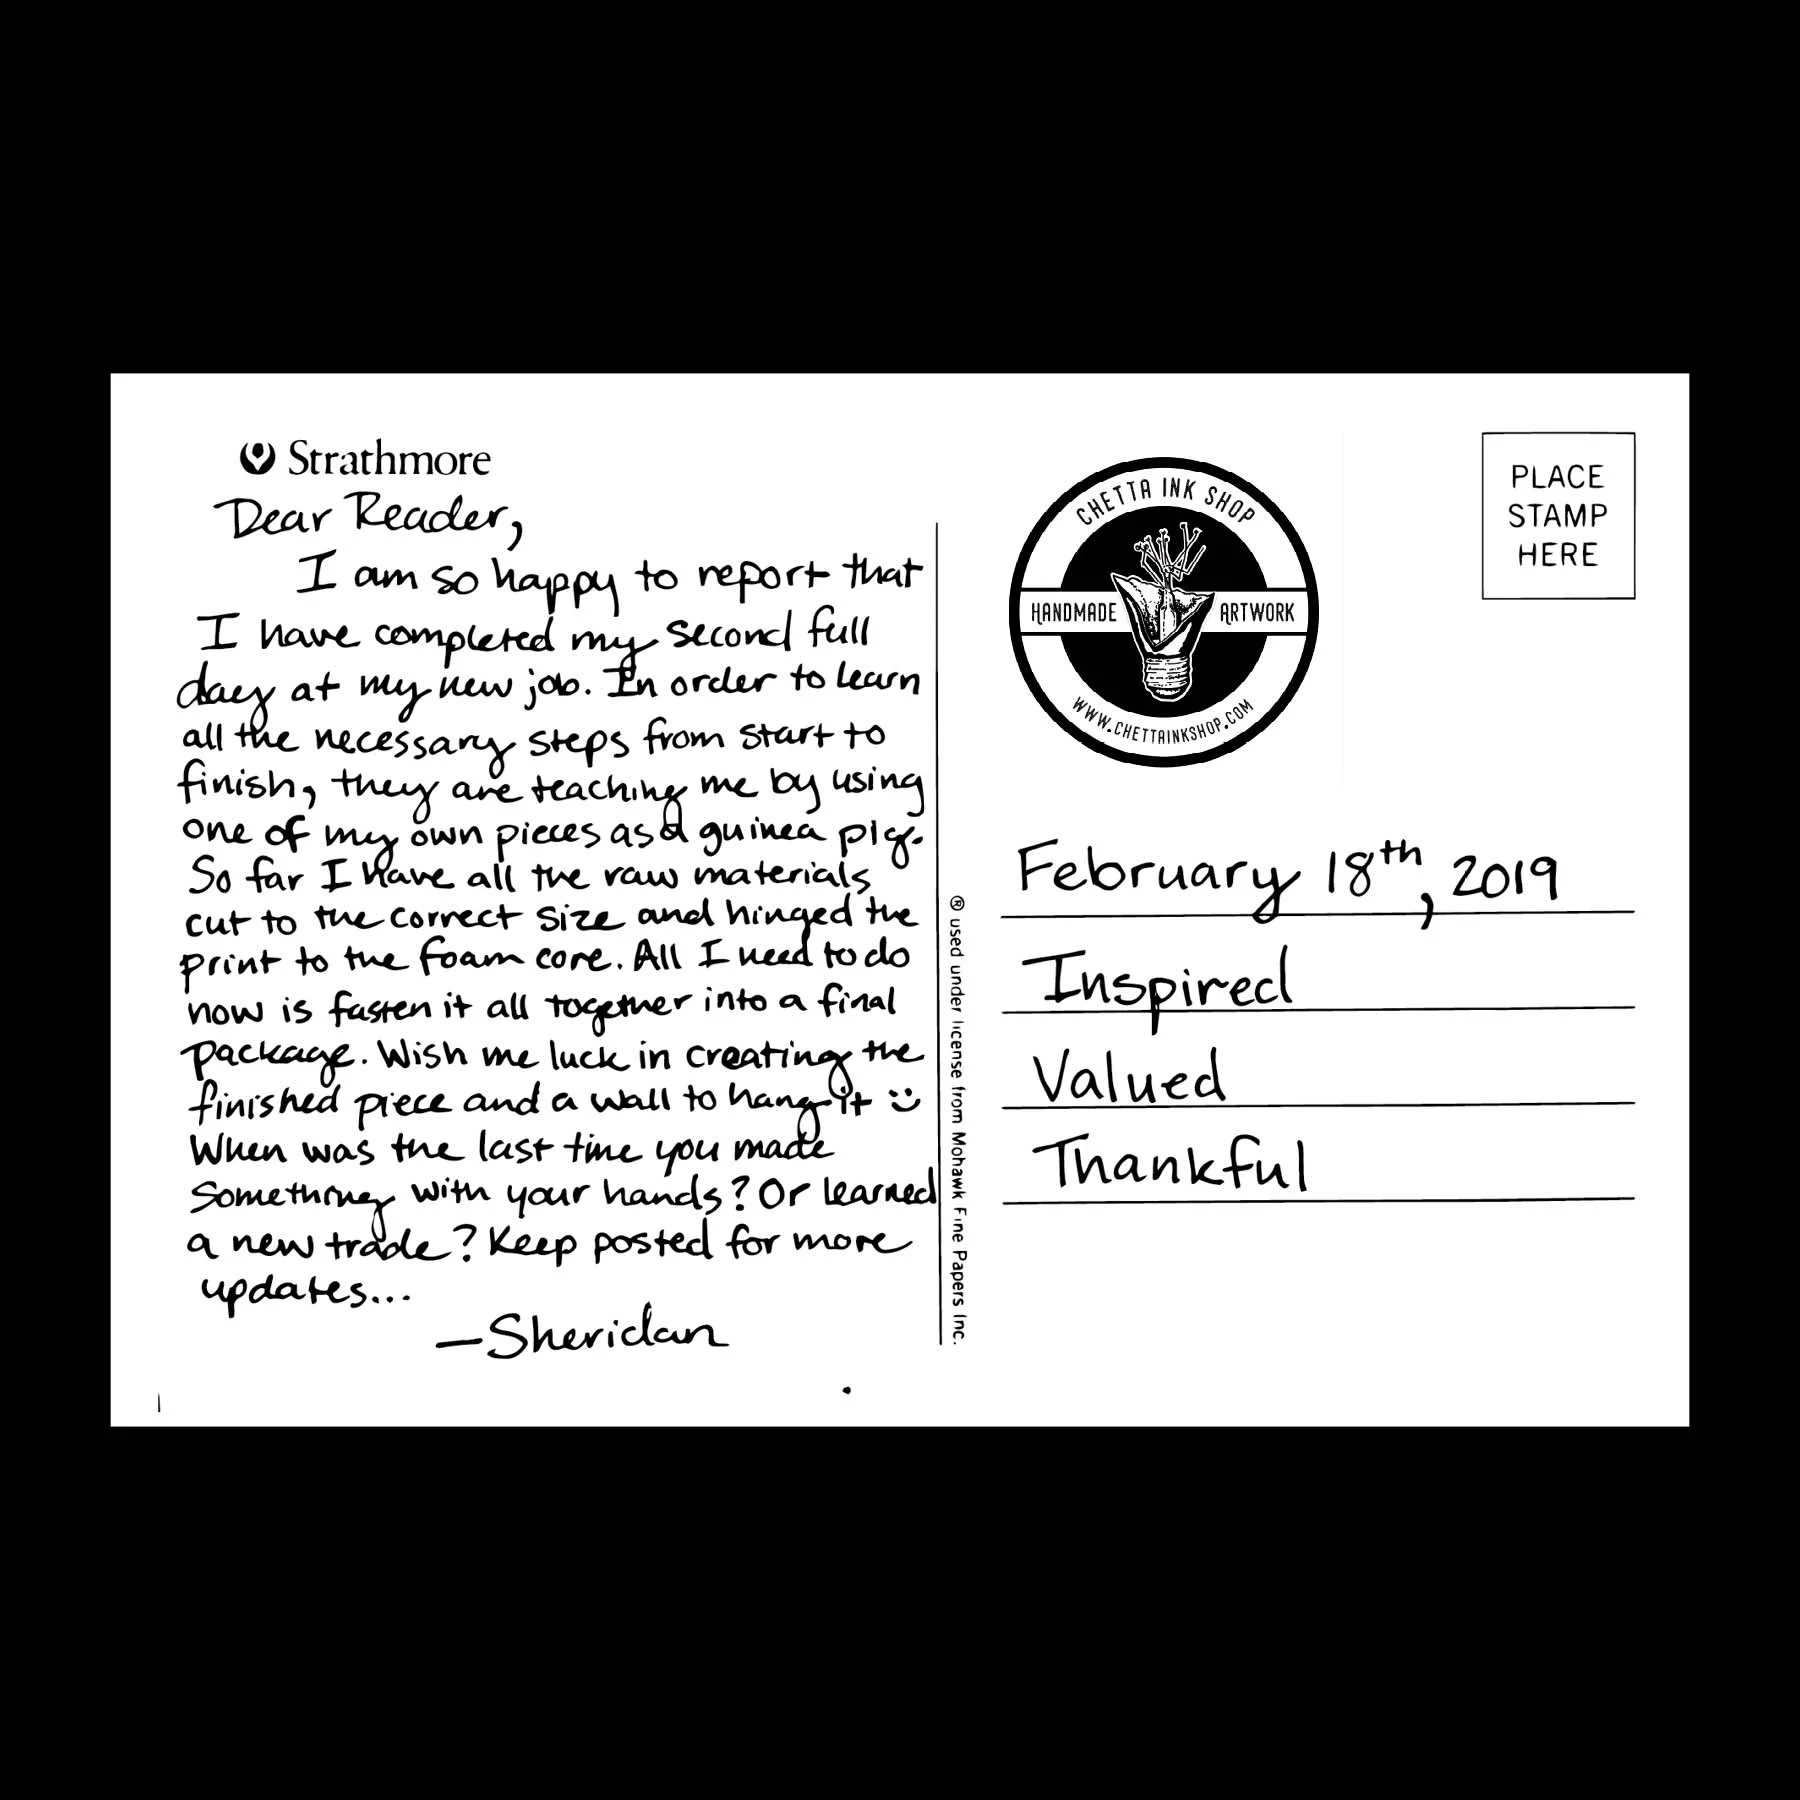 Strathmore
Dear Reader,
I am so happy to report that
I have completed my second full
day at my new job. In order to learn
all the necessary steps from start to
finish, they are teaching me by using
one of my own pieces as a guinea pig.
So far I have all the raw materials
cut to the correct size and hinged the
print to the foam core. All I need to do
now is fasten it all together into a final
package. Wish me luck in creating the
finished piece and a wall to hang it :)
When was the last time you made
something with your hands? Or learned
a new trade? Keep posted for more
updates...
—Sheridan
® used under license from Mohawk Fine Papers Inc.
CHETTA INK SHOP
HANDMADE ARTWORK
WWW.CHETTAINKSHOP.COM
PLACE
STAMP
HERE
February 18th, 2019
Inspired
Valued
Thankful